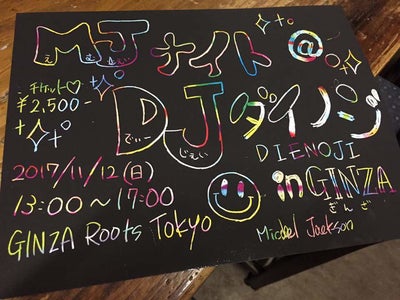 MJナイト@
えむじぇい
チケット♡
¥2,500-
DJダイノジ
でぃー じぇい
DIENOJI
2017/11/12(日)
inGINZA
ぎんざ
13:00~17:00
GINZA Roots Tokyo
Michael Jackson